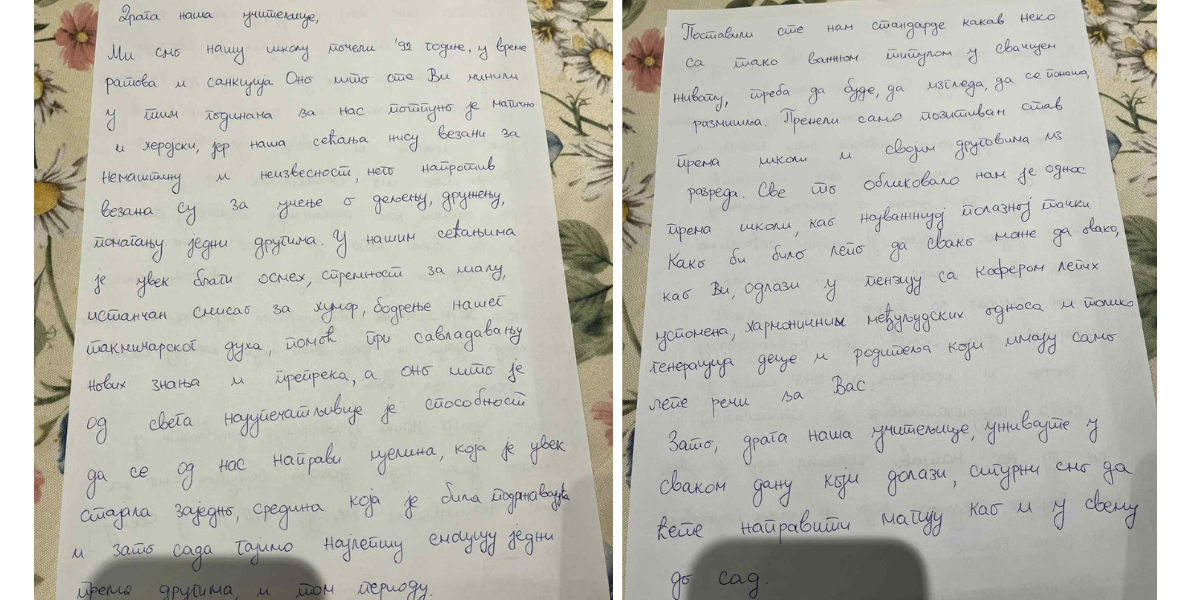 Драга наша учитељице,
Ми смо нашу школу почели '92 године, у време
ратова и санкција Оно што сте Ви чинили
у тим годинама за нас потпуно је магично
и херојски, јер наша сећања нису везани за
немаштину и неизвесност, него напротив
везана су за учење о дељењу, дружењу,
помагању једни другима. У нашим сећањима
је увек благи осмех, спремност за шалу,
истанчан смисао за хумор, бодрење нашег
такмичарског духа, помоћ при савладавању
нових знања и препрека, а оно што је
од свега најупечатљивије је способност
да се од нас направи целина, која је увек
стајала заједно, средина која је била подржавајућа
и зато сада гајимо најлепшу емоцију једни
према другима, и том периоду.
Поставили сте нам стандарде какав неко
са тако важном титулом у свачијем
животу, треба да буде, да изгледа, да се понаша,
размишља. Пренели само позитиван став
према школи и својим друговима из
разреда. Све то обликовало нам је однос
према школи, као најважнијој полазној тачки
Како би било лепо да свако може да овако,
као Ви, одлази у пензију са кофером лепих
успомена, хармоничним међуљудских односа и толико
генерација деце и родитеља који имају само
лепе речи за Вас.
Зато, драга наша учитељице, уживајте у
сваком дану који долази, сигурни смо да
ћете направити магију као и у свему
до сад.